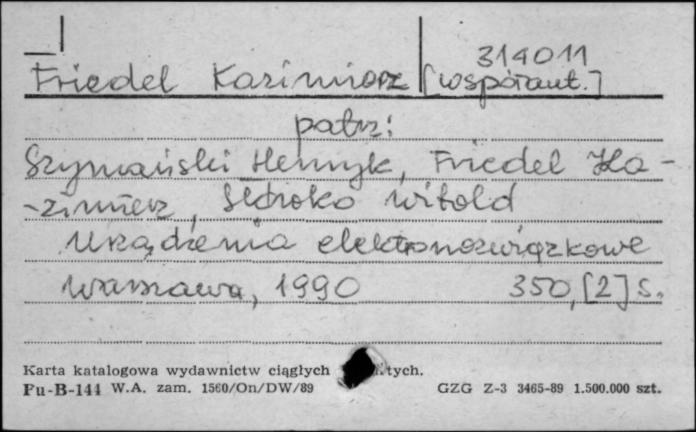 314011
Friedel Kazimierz [współaut.]
patrz:
Szymański Henryk, Friedel Ka-
-zimierz, Sędroko Witold
Urządzenia elektronowiązkowe
Warszawa, 1990 350,[2]s.
Karta katalogowa wydawnictw ciągłych tych.
Pu-B-144 W.A. zam. 1560/On/DW/89 GZG Z-3 3465-89 1.500.000 szt.